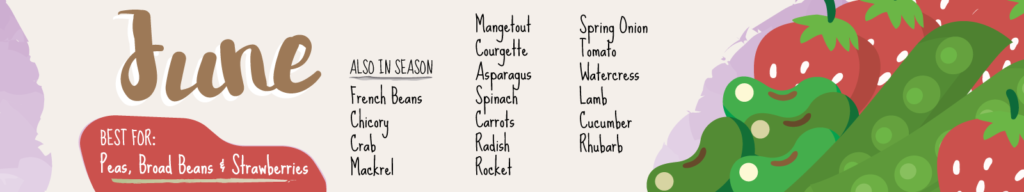 June
BEST FOR:
Peas, Broad Beans & Strawberries
ALSO IN SEASON
French Beans
Chicory
Crab
Mackrel
Mangetout
Courgette
Asparagus
Spinach
Carrots
Radish
Rocket
Spring Onion
Tomato
Watercress
Lamb
Cucumber
Rhubarb